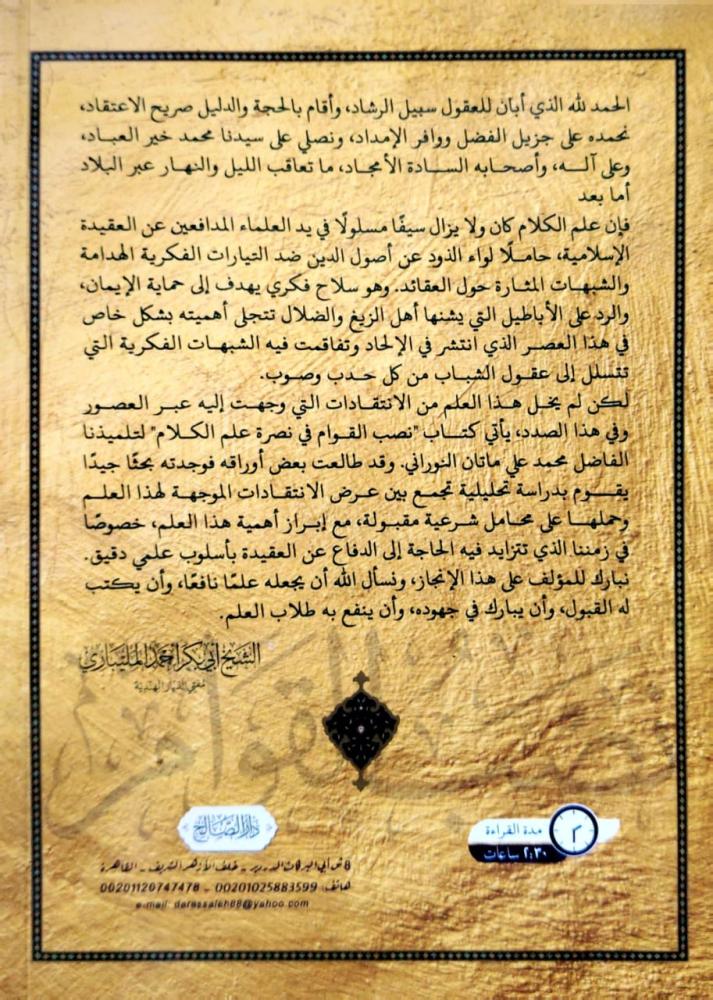 الحمد لله الذي أبان للعقول سبيل الرشاد، وأقام بالحجة والدليل صريح الاعتقاد،
نحمده على جزيل الفضل ووافر الإمداد، ونصلي على سيدنا محمد خير العباد،
وعلى آلـه، وأصحابه السـادة الأمجاد، ما تعاقب الليل والنهار عبر البلاد
أما بعد
فإن علم الكلام كان ولا يزال سيفًا مسلولًا في يد العلماء المدافعين عن العقيدة
الإسلامية، حاملًا لواء الذود عن أصول الدين ضد التيارات الفكرية الهدامة
والشبهات المثارة حول العقائد. وهو سلاح فكري يهدف إلى حماية الإيمان،
والرد على الأباطيل التي يشنها أهل الزيغ والضلال تتجلى أهميته بشكل خاص
في هذا العصر الذي انتشر في الإلحاد وتفاقمت فيه الشبهات الفكرية التي
تتسلل إلى عقول الشباب من كل حدب وصوب.
لكن لم يخل هذا العلم من الانتقادات التي وجهت إليه عبر العصور
وفي هذا الصدد، يأتي كتاب "نصب القوام في نصرة علم الكلام" لتلميذنا
الفاضل محمد علي ماتان النوراني. وقد طالعت بعض أوراقه فوجدته بحثًا جيدًا
يقوم بدراسة تحليلية تجمع بين عرض الانتقادات الموجهة لهذا العلم
وحملها على محامل شرعية مقبولة، مع إبراز أهمية هذا العلم، خصوصًا
في زمننا الذي تتزايد فيه الحاجة إلى الدفاع عن العقيدة بأسلوب علمي دقيق.
نبارك للمؤلف على هذا الإنجاز، ونسأل الله أن يجعله علمًا نافعًا، وأن يكتب
له القبول، وأن يبارك في جهوده، وأن ينفع به طلاب العلم.
الشيخ أبي بكر أحمد المليباري
مفتي الديار الهندية
نصب القوام
دار الصالح
8 ش أبي البركات الدردير - خلف الأزهر الشريف - القاهرة
هاتف: 00201025883599 - 00201120747478
e-mail: darassaleh88@yahoo.com
مدة القراءة
٢
٢:٣٠ ساعات